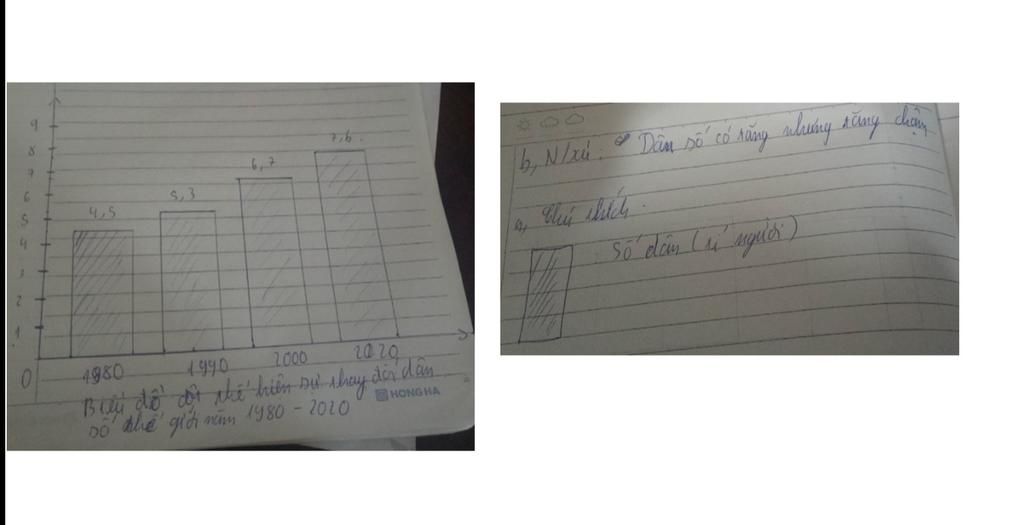 9
8
7
6
5
4
3
2
1
0
4,5
5,3
6,7
7,6
1980
1990
2000
2020
Biểu đồ cột thể hiện sự thay đổi dân
số thế giới năm 1980 - 2020
HONG HA
b, N/xét: Dân số có tăng nhưng tăng chậm
a, Chú thích.
Số dân (tỉ người)